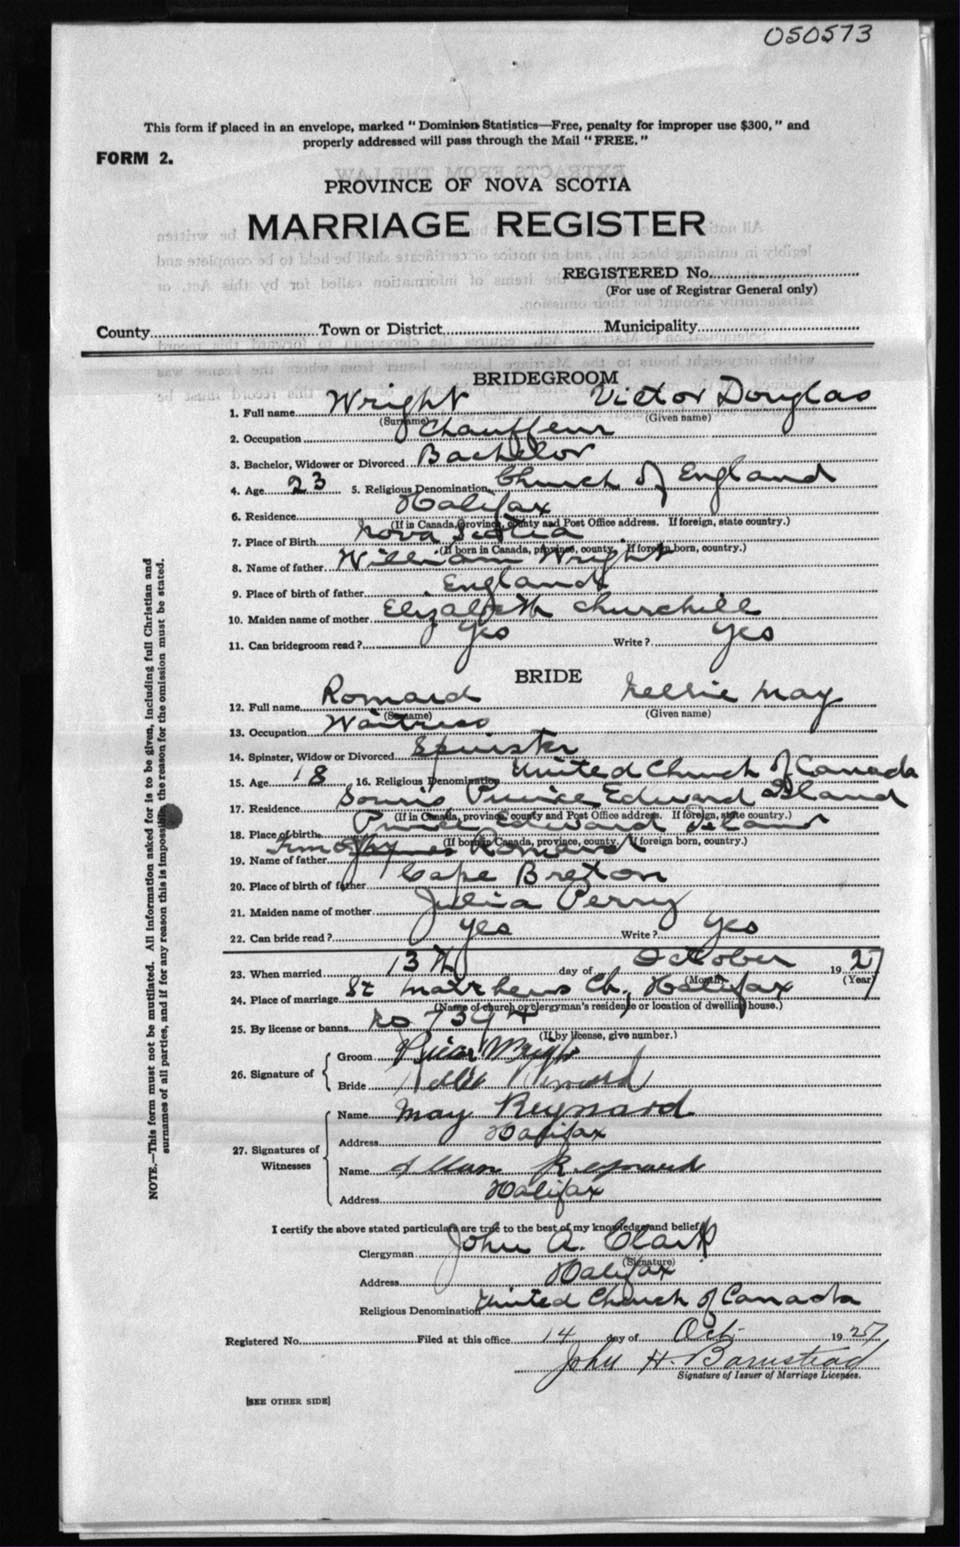 050573
This form if placed in an envelope, marked "Dominion Statistics—Free, penalty for improper use $300," and
properly addressed will pass through the Mail "FREE."
FORM 2.
PROVINCE OF NOVA SCOTIA
MARRIAGE REGISTER
REGISTERED No.
(For use of Registrar General only)
County Town or District Municipality
BRIDEGROOM
1. Full name Wright Victor Douglas
(Surname) (Given name)
2. Occupation Chauffeur
3. Bachelor, Widower or Divorced Bachelor
4. Age 23 5. Religious Denomination Church of England
6. Residence Halifax
(If in Canada, province, county and Post Office address. If foreign, state country.)
7. Place of Birth Nova Scotia
(If born in Canada, province, county. If foreign born, country.)
8. Name of father William Wright
9. Place of birth of father England
10. Maiden name of mother Elizabeth Churchill
11. Can bridegroom read? Yes Write? Yes
BRIDE
12. Full name Romard Nellie May
(Surname) (Given name)
13. Occupation Waitress
14. Spinster, Widow or Divorced Spinster
15. Age 18 16. Religious Denomination United Church of Canada
17. Residence Souris Prince Edward Island
(If in Canada, province, county and Post Office address. If foreign, state country.)
18. Place of birth Prince Edward Island
(If born in Canada, province, county. If foreign born, country.)
19. Name of father Timothy Romard
20. Place of birth of father Cape Breton
21. Maiden name of mother Julia Perry
22. Can bride read? Yes Write? Yes
23. When married 13th day of October 1927
(Month) (Year)
24. Place of marriage St Matthews Ch, Halifax
(Name of church or clergyman's residence or location of dwelling house.)
25. By license or banns No 7394
(If by license, give number.)
26. Signature of Groom Victor Wright
Bride Nellie Romard
27. Signatures of Witnesses
Name May Reynard
Address Halifax
Name Allan Reynard
Address Halifax
I certify the above stated particulars are true to the best of my knowledge and belief
Clergyman John A. Clark
(Signature)
Address Halifax
Religious Denomination United Church of Canada
Registered No. Filed at this office 14 day of Oct. 1927
John H. Barnstead
Signature of Issuer of Marriage Licenses.
[SEE OTHER SIDE]
NOTE.—This form must not be mutilated. All information asked for is to be given, including full Christian and
surnames of all parties, and if for any reason this is impossible the reason for the omission must be stated.